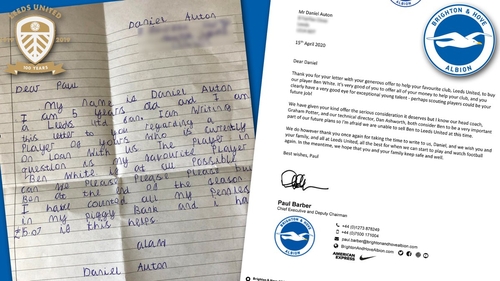 LEEDS UNITED
100 YEARS
Daniel Auton
Dear Paul
My Name is Daniel Auton
I am 5 years old and I am
a Leeds Utd fan. I am Writing
this letter to you regarding a
Player of yours Who is currently
on Loan With us The Player in
question is my favourite Player
Ben White is at all Possible
can We Please Please buy
Ben at the end of the season
I have counted all my Pennies
in my Piggy Bank and i have
£5.07 is this helps.
Daniel Auton
Mr Daniel Auton
15th April 2020
Dear Daniel
Thank you for your letter with your generous offer to help your favourite club, Leeds United, to buy
our player Ben White. It's very good of you to offer all of your money to help your club, and you
clearly have a very good eye for exceptional young talent - perhaps scouting players could be your
future job!
We have given your kind offer the serious consideration it deserves but I know our head coach,
Graham Potter, and our technical director, Dan Ashworth, both consider Ben to be a very important
part of our future plans so I'm afraid we are unable to sell Ben to Leeds United at this time.
We do however thank you once again for taking the time to write to us, Daniel, and we wish you and
your family, and all at Leeds United, all the best for when we can start to play and watch football
again. In the meantime, we hope that you and your family keep safe and well.
Best wishes, Paul
Paul Barber
Chief Executive and Deputy Chairman
+44 (0)1273 878249
+44 (0)7500 171004
paul.barber@brightonandhovealbion.com
BrightonAndHoveAlbion.com
BRIGHTON & HOVE
ALBION
AMERICAN
EXPRESS
BRIGHTON & HOVE
ALBION